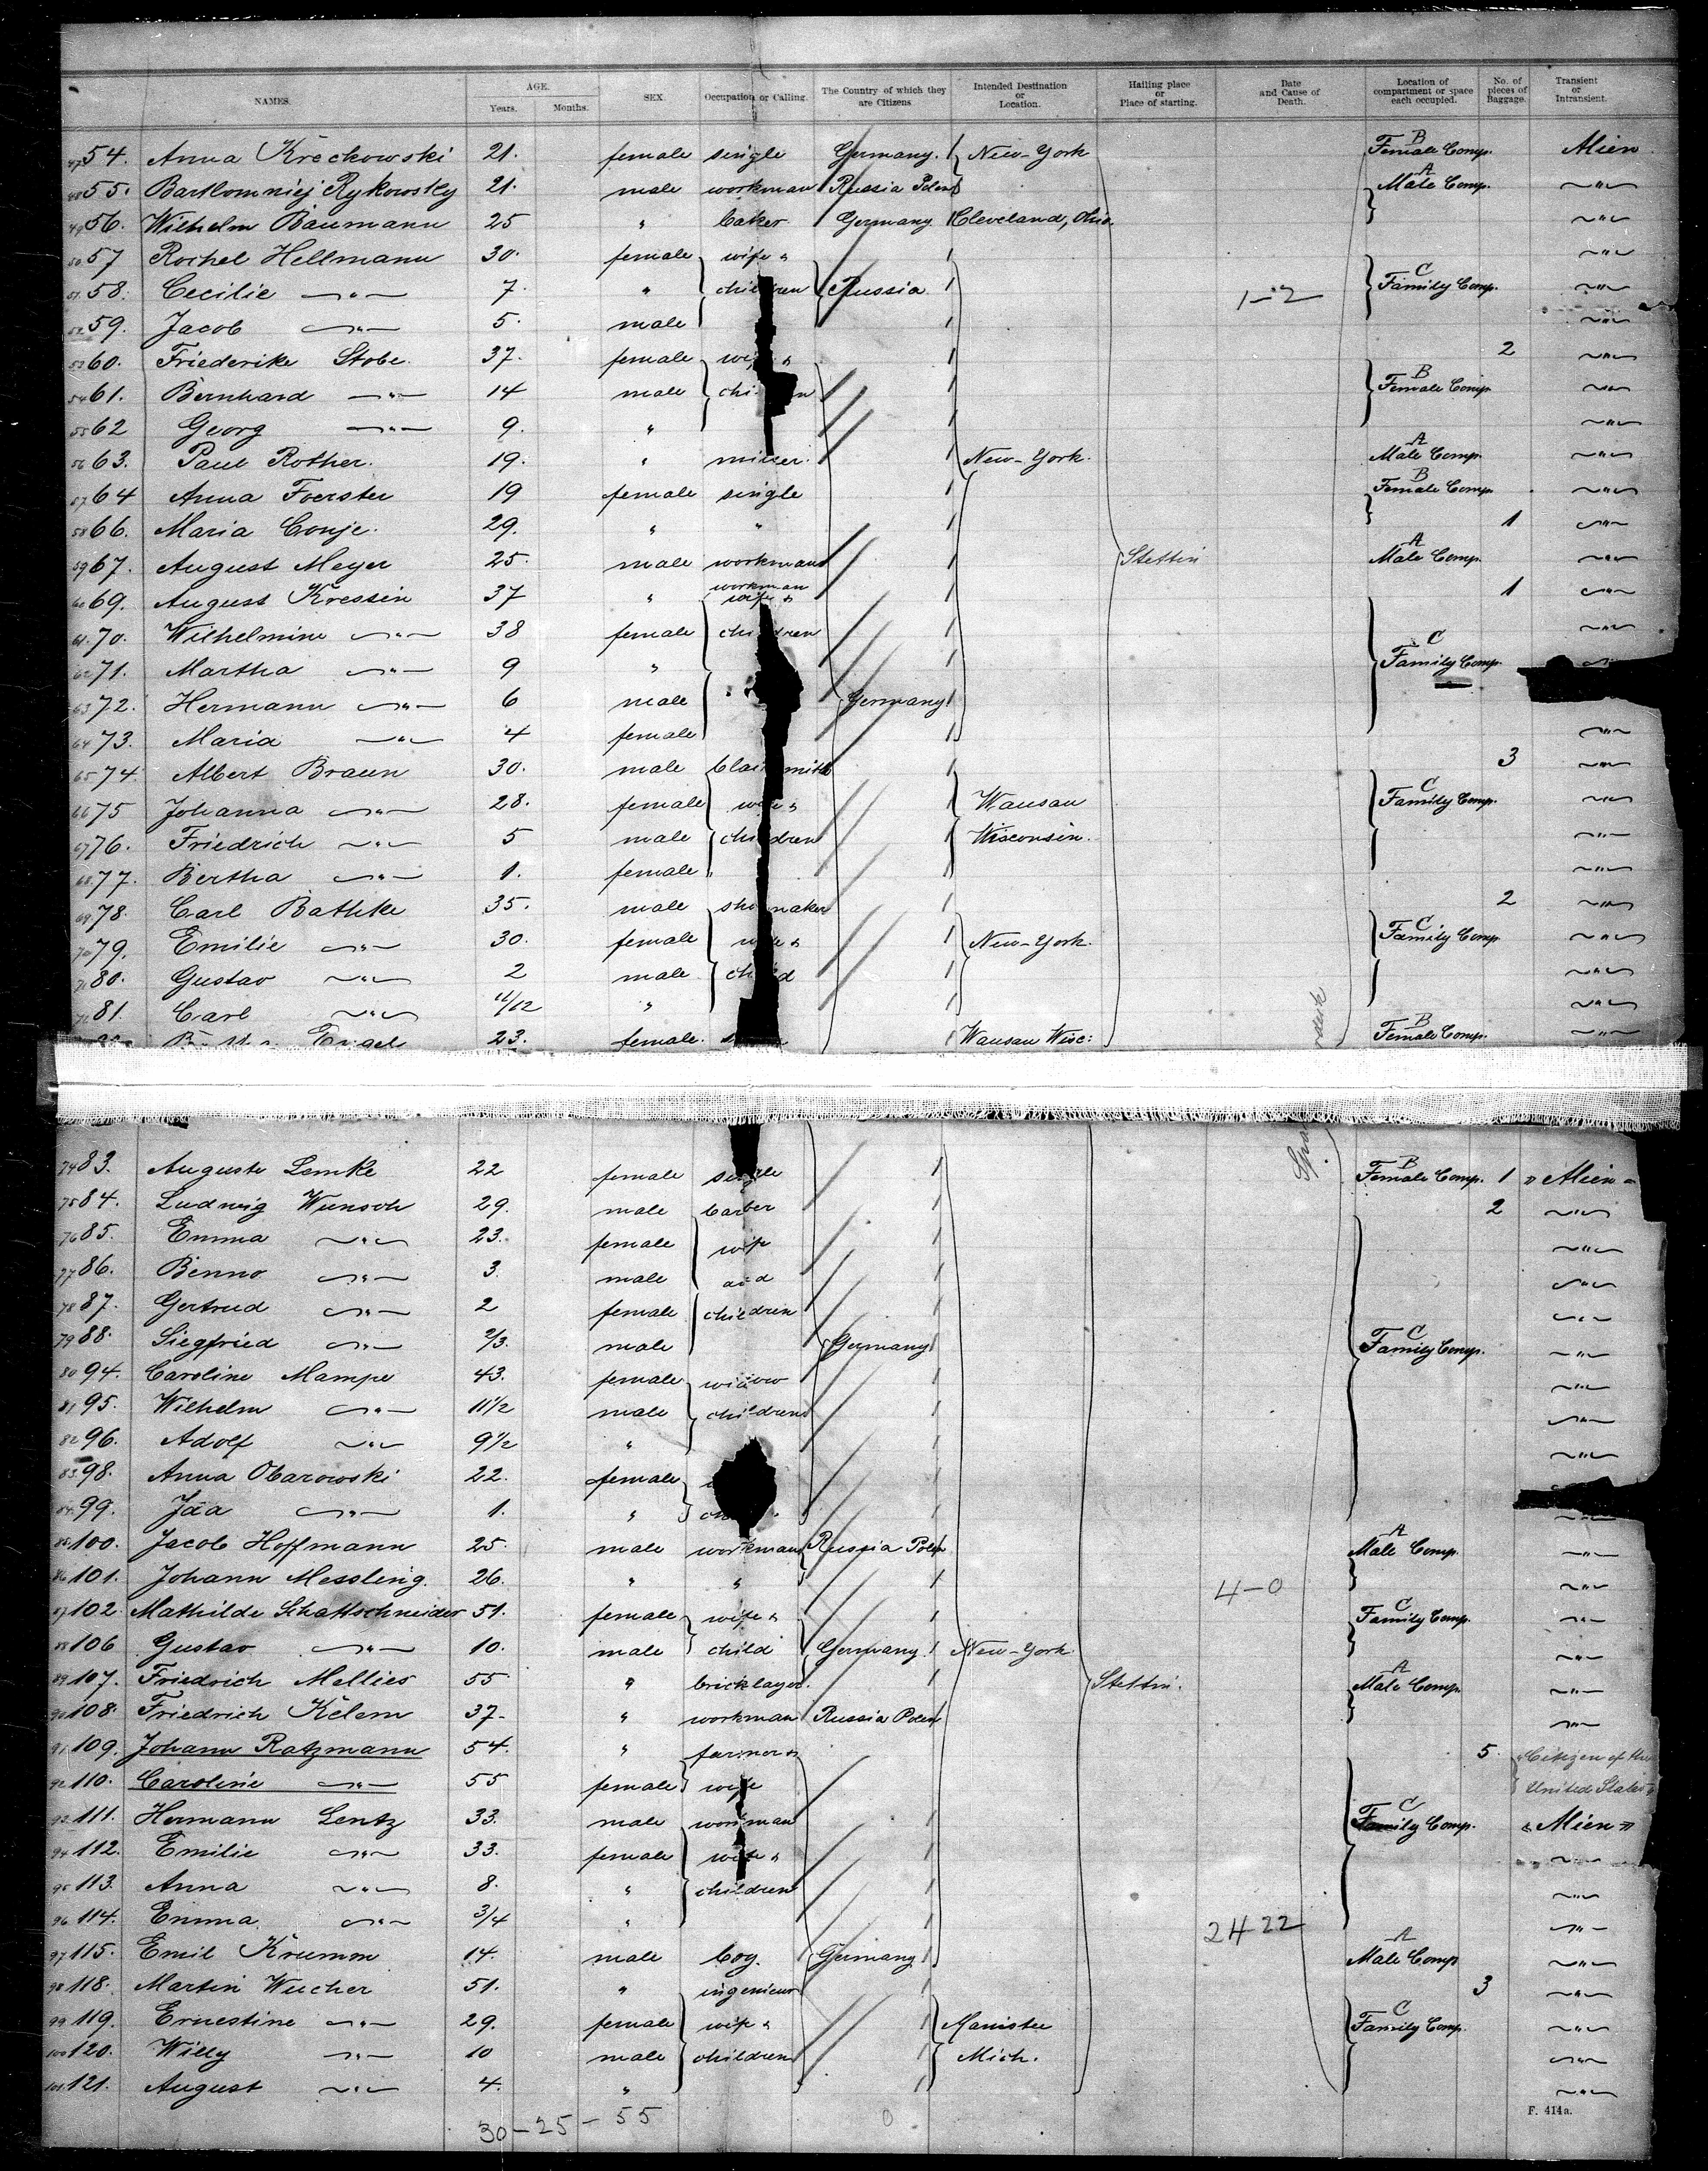 NAMES. AGE. Years. Months. SEX. Occupation or Calling. The Country of which they are Citizens Intended Destination or Location. Hailing place or Place of starting. Date and Cause of Death. Location of compartment or space each occupied. No. of pieces of Baggage. Transient or Intransient.
47 54. Anna Kreckowski 21. female single Germany. New-York B Female Comp. Alien
48 55. Bartlomniej Rykowsky 21. male workman Russia Polen A Male Comp. 〃
49 56. Wilhelm Baumann 25 " baker Germany Cleveland, Ohio. 〃
50 57 Rochel Hellmann 30. female wife & 〃
51 58. Cecilie 〃 7. " children Russia 1-2 C Family Comp. 〃
52 59. Jacob 〃 5. male 〃
53 60. Friederike Stobe. 37. female 2 〃
54 61. Bernhard 〃 14 male B Female Comp. 〃
55 62 Georg 〃 9. " 〃
56 63. Paul Rother. 19. " New-York. A Male Comp. 〃
57 64 Anna Foerster 19 female single B Female Comp. 〃
58 66. Maria Conje. 29. " " 1 〃
59 67. August Meyer 25. male workman Stettin A Male Comp. 〃
60 69. August Kressin 37 " workman wife & 1 〃
61 70. Wilhelmine 〃 38 female children 〃
62 71. Martha 〃 9 " C Family Comp.
63 72. Hermann 〃 6 male Germany
64 73. Maria 〃 4 female 〃
65 74. Albert Braun 30. male 3 〃
66 75 Johanna 〃 28. female wife & Wausau C Family Comp. 〃
67 76. Friedrich 〃 5 male children Wisconsin. 〃
68 77. Bertha 〃 1. female 〃
69 78. Carl Bathke 35. male shoemaker 2 〃
70 79. Emilie 〃 30. female wife & New-York. C Family Comp 〃
71 80. Gustav 〃 2 male child 〃
72 81. Carl 〃 11/12 " 〃
Engel 23. female. Wausau Wisc: B Female Comp. 〃
74 83. Auguste Lemke 22 female single B Female Comp. 1 " Alien "
75 84. Ludwig Wunsch 29. male barber 2 〃
76 85. Emma 〃 23. female wife 〃
77 86. Benno 〃 3. male and 〃
78 87. Gertrud 〃 2 female children 〃
79 88. Siegfried 〃 2/3. male Germany C Family Comp. 〃
80 94. Caroline Mampe 43. female widow 〃
81 95. Wilhelm 〃 11 1/2 male children 〃
82 96. Adolf 〃 9 1/2 " 〃
83 98. Anna Obarowski 22. female
84 99. Ida 〃 1. " 〃
85 100. Jacob Hoffmann 25. male workman Russia Polen A Male Comp. 〃
86 101. Johann Messling. 26. " " 4-0 〃
87 102. Mathilde Schattschneider 51. female wife & C Family Comp. 〃
88 106 Gustav 〃 10. male child Germany New-York 〃
89 107. Friedrich Mellies 55 " bricklayer. Stettin. A Male Comp 〃
90 108. Friedrich Kelem 37- " workman Russia Polen 〃
91 109. Johann Ratzmann 54. " farmer & 5. Citizen of the
92 110. Caroline 〃 55 female wife United States
93 111. Hermann Lentz 33. male workman C Family Comp. " Alien "
94 112. Emilie 〃 33. female wife & 〃
95 113. Anna 〃 8. " children 〃
96 114. Emma. 〃 3/4 " 2422 〃
97 115. Emil Krumm 14. male boy. Germany A Male Comp 〃
98 118. Martin Wucher 51. " ingenieur 3 〃
99 119. Ernestine 〃 29. female wife & Manistee C Family Comp. 〃
100 120. Willy 〃 10 male children Mich. 〃
101 121. August 〃 4. " 〃
F. 414a.
30-25-55 0